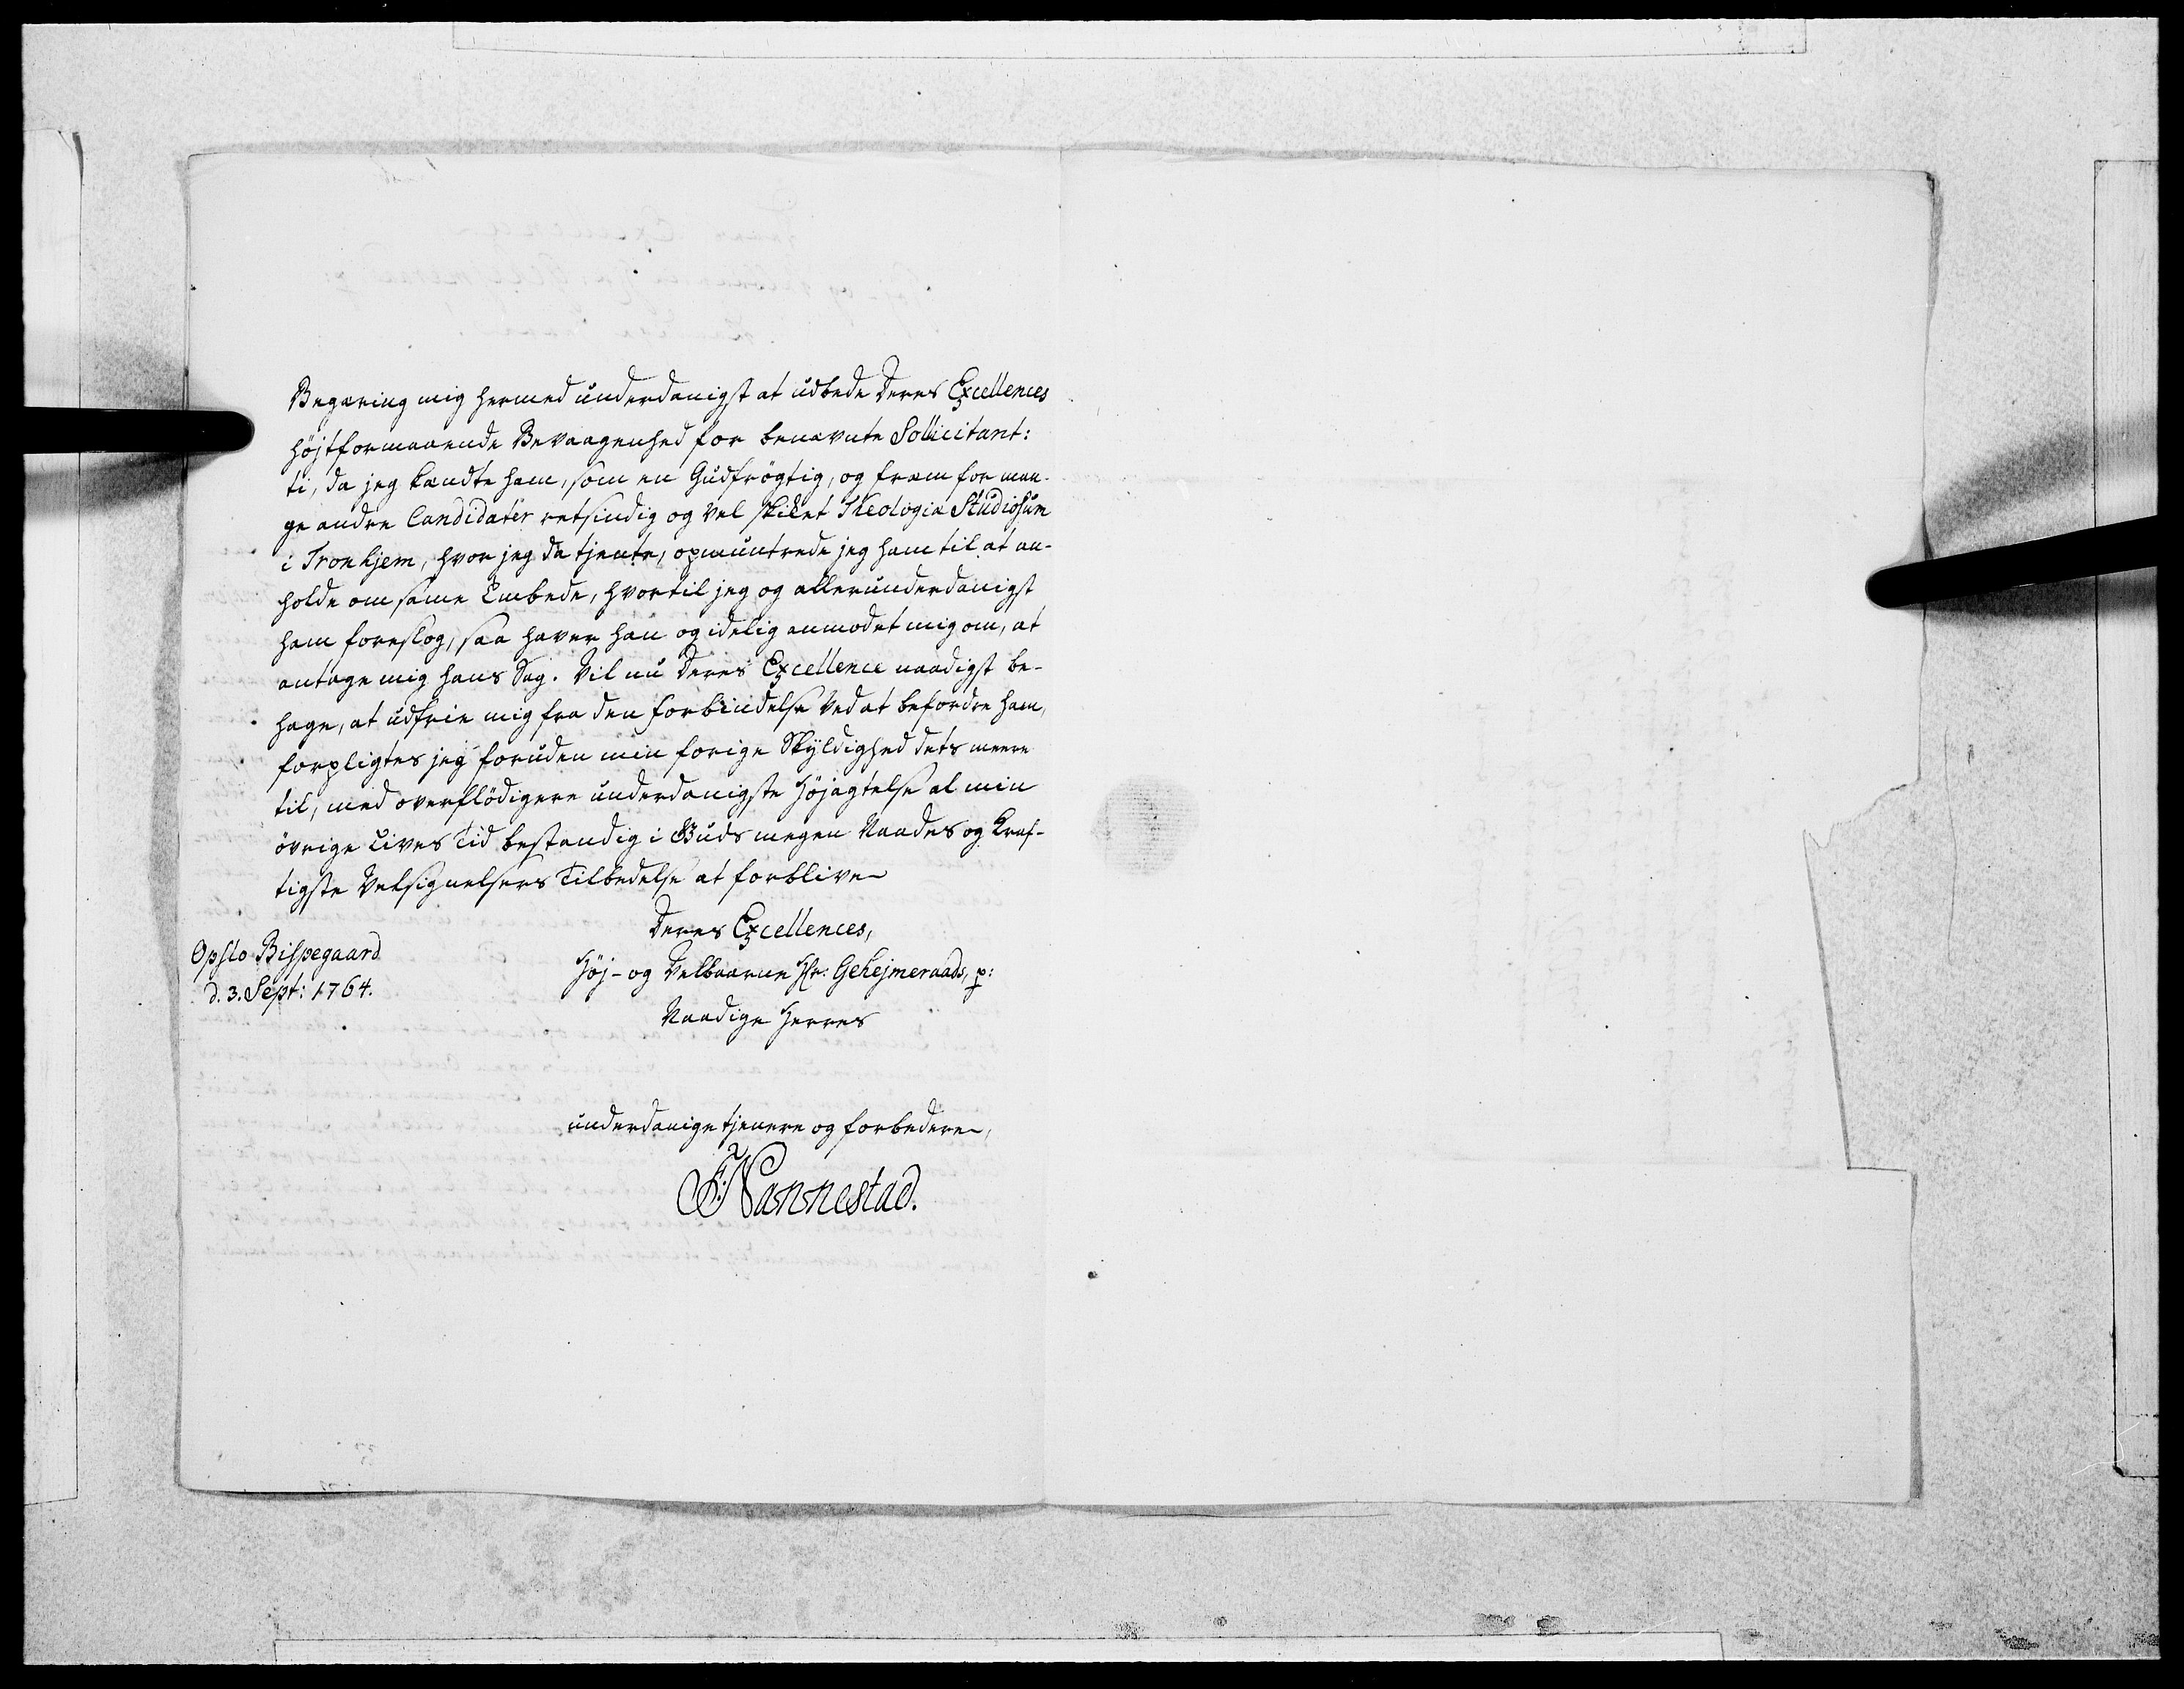 Begæring mig hermed underdanigst at udbede Deres Excellences
höjtformaaende Bevaagenhed for benævnte Sollicitant:
ti, da jeg kændte ham, som en Gudfrögtig, og frem for man-
ge andre Candidater retsindig og vel skiket Theologiæ Studiosum
i Tronhjem, hvor jeg da tjente, opmuntrede jeg ham til at an-
holde om samme Embede, hvortil jeg og allerunderdanigst
ham foreslog, saa haver han og idelig anmodet mig om, at
antage mig hans Sag. Vil nu Deres Excellence naadigst be-
hage, at udfrie mig fra den forbindelse ved at befordre ham,
forpligtes jeg foruden min forige Skyldighed dets meere
til, med overflödigere underdanigste Höjagtelse al min
övrige Lives Tid bestandig i Guds megen Naades og kraf-
tigste Velsignelsers Tilbedelse at forblive
Deres Excellences,
Höj- og Velbaarne Hr: Gehejmeraads, p:
Naadige Herres
Opslo Bispegaard
d. 3. Sept: 1764.
underdanige tjenere og forbedere,
F: Nannestad.